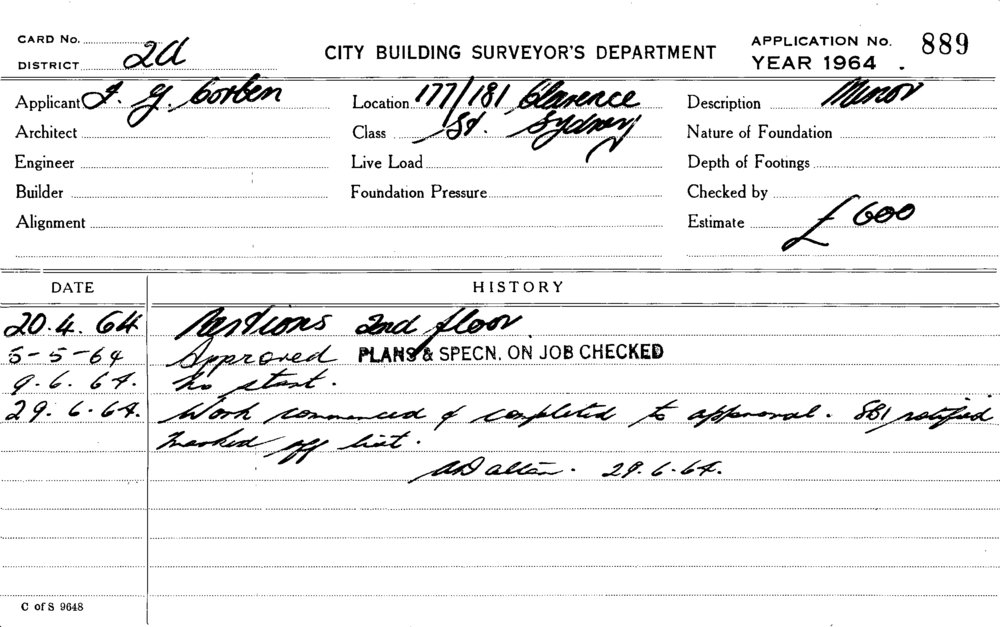 CARD No.
DISTRICT 2A
CITY BUILDING SURVEYOR'S DEPARTMENT
APPLICATION No. 889
YEAR 1964 .
Applicant J. Y. Corben
Location 177/181 Clarence
Description Minor
Architect
Class St. Sydney
Nature of Foundation
Engineer
Live Load
Depth of Footings
Builder
Foundation Pressure
Checked by
Alignment
Estimate £ 600
DATE HISTORY
20.4.64 Partions 2nd floor
5-5-64 Approved PLANS & SPECN. ON JOB CHECKED
9.6.64. No start.
29.6.64. Work commenced & completed to approval. SBI notified
marked off list.
ADalton. 29.6.64.
C of S 9648